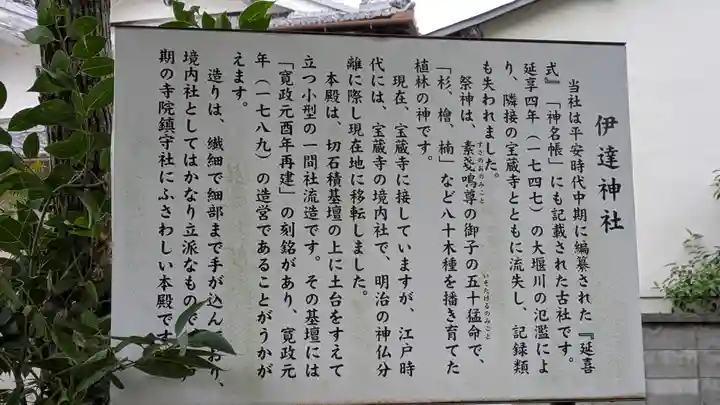 伊達神社
当社は平安時代中期に編纂された『延喜
式』「神名帳」にも記載された古社です。
延享四年(一七四七)の大堰川の氾濫によ
り、隣接の宝蔵寺とともに流失し、記録類
も失われました。
祭神は、素戔嗚尊の御子の五十猛命で、
すさのおのみこと
いそたけるのみこと
「杉、檜、楠」など八十木種を播き育てた
植林の神です。
現在、宝蔵寺に接していますが、江戸時
代には、宝蔵寺の境内社で、明治の神仏分
離に際し現在地に移転しました。
本殿は、切石積基壇の上に土台をすえて
立つ小型の一間社流造です。その基壇には
「寛政元酉年再建」の刻銘があり、寛政元
年(一七八九)の造営であることがうかが
えます。
造りは、繊細で細部まで手が込ん おり、
境内社としてはかなり立派なもので
期の寺院鎮守社にふさわしい本殿です